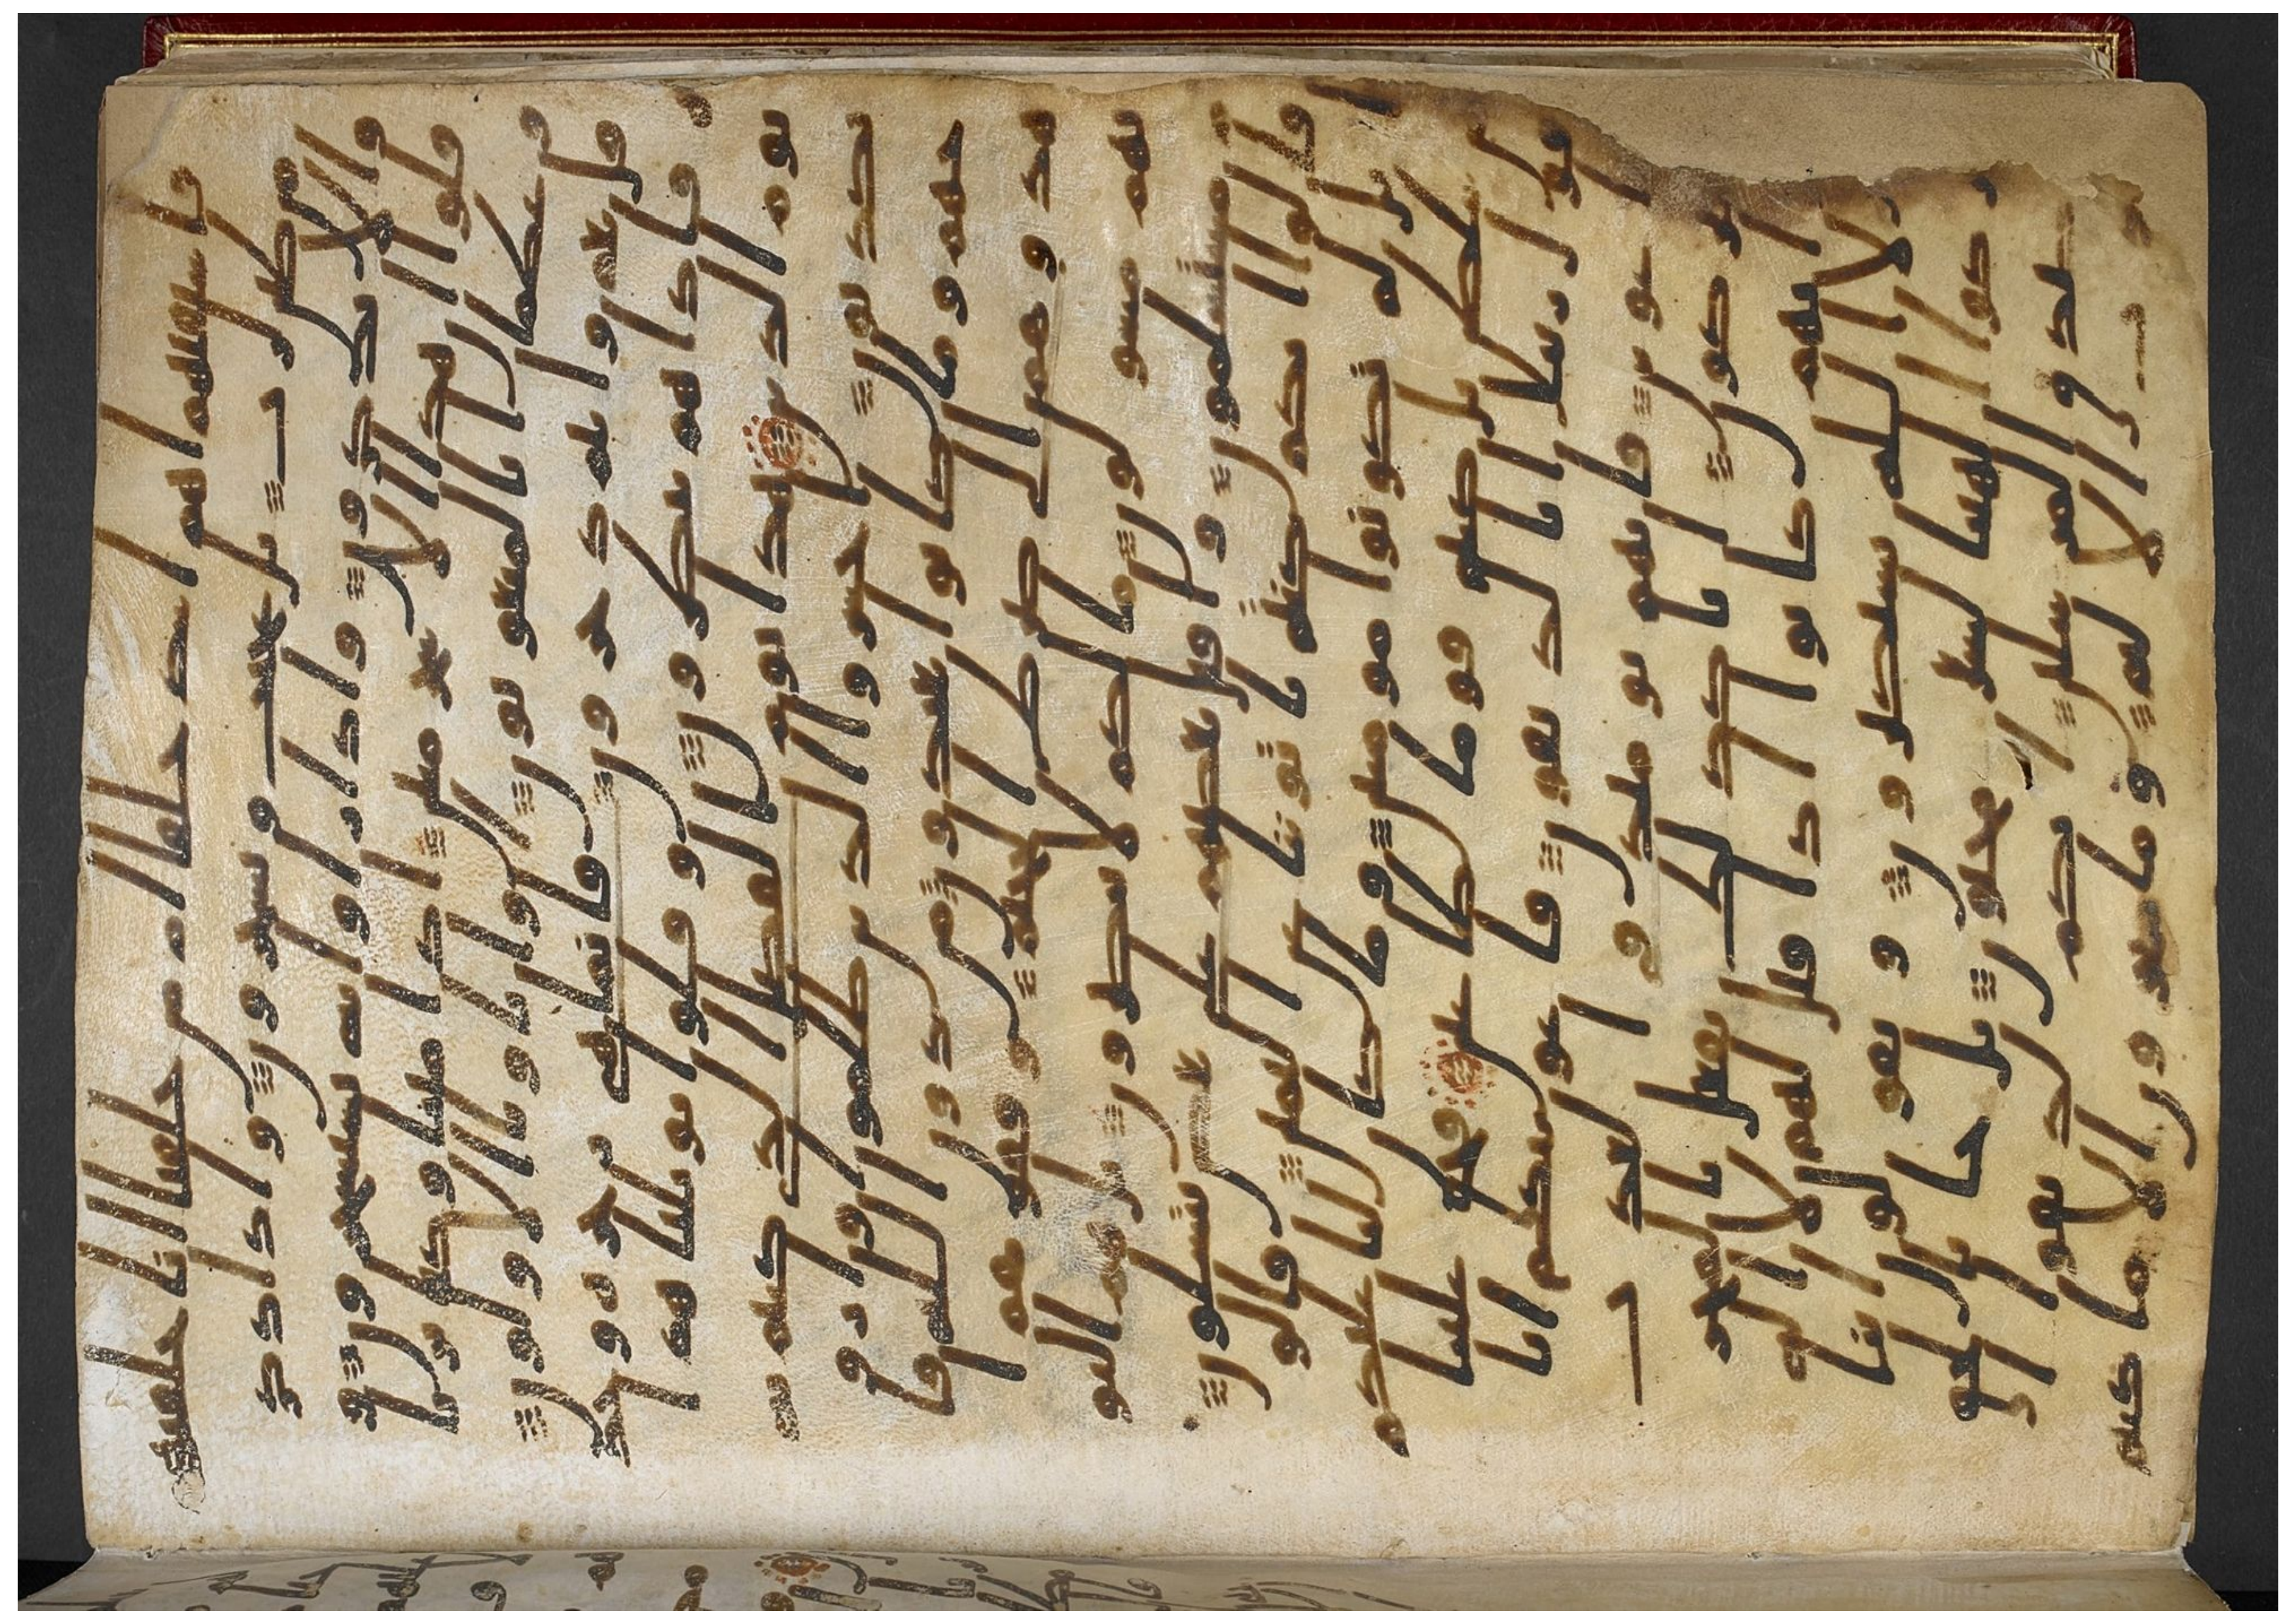 فاستفتهم اهم اشد خلقا ام من خلقنا انا خلقنهم
من طين لازب بل عجبت ويسخرون واذا ذكر
وا لا يذكرون واذا راوا ايه يستسخرون
وقالوا ان هذا الا سحر مبين اذا متنا وكنا تر
ابا وعظما انا لمبعوثون او اباونا الاولون
قل نعم وانتم دخرون فانما هي زجره وحده
فاذا هم ينظرون وقالوا يويلنا هذا
يوم الدين هذا يوم الفصل الذي كنتم به
تكذبون احشروا الذين ظلموا وازو
جهم وما كانوا يعبدون من دون الله فا
هدوهم الى صرط الجحيم وقفوهم انهم
مسولون ما لكم لا تناصرون بل هم اليوم
مستسلمون واقبل بعضهم على بعض يتسالون
قالوا انكم كنتم تاتوننا عن اليمين قالوا
بل لم تكونوا مومنين وما كان لنا عليكم
من سلطن بل كنتم قوما طغين فحق علينا
قول ربنا انا لذايقون فاغوينكم انا
كنا غوين فانهم يوميذ في العذاب
مشتركون انا كذلك نفعل بالمجر
مين انهم كانوا اذا قيل لهم لا اله ا
لا الله يستكبرون ويقولون اينا
لتاركوا الهتنا لشاعر مجنون بل جا بالحق
وصدق المرسلين انكم لذايقوا ا
لعذاب الاليم وما تجزون الا ما كنتم